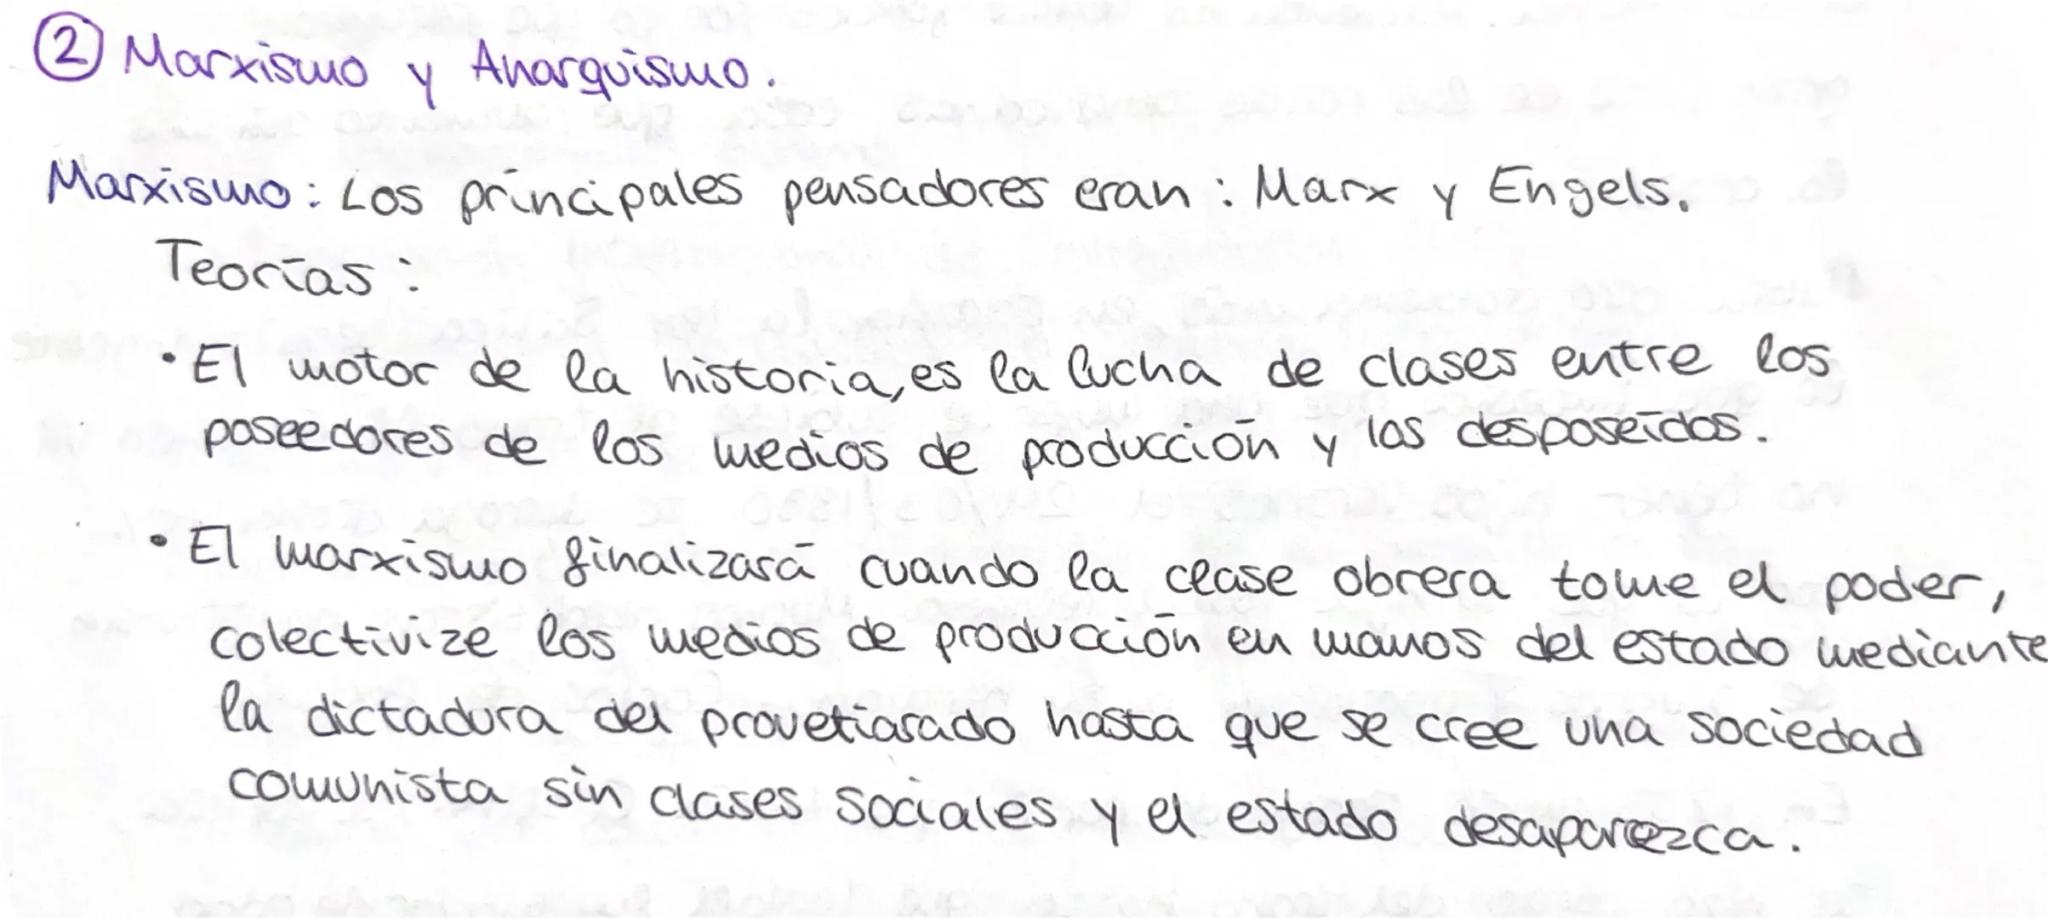 ② Marxismo y Anarquismo.
Marxismo: Los principales pensadores eran: Marx y Engels.
Teorías:
• El motor de la historia, es la lucha de clases entre los
poseedores de los medios de producción y los desposeídos.
• El marxismo finalizará cuando la clase obrera tome el poder,
colectivize los medios de producción en manos del estado mediante
la dictadura del provetiarado hasta que se cree una sociedad
comunista sin clases sociales y el estado desaparezca.